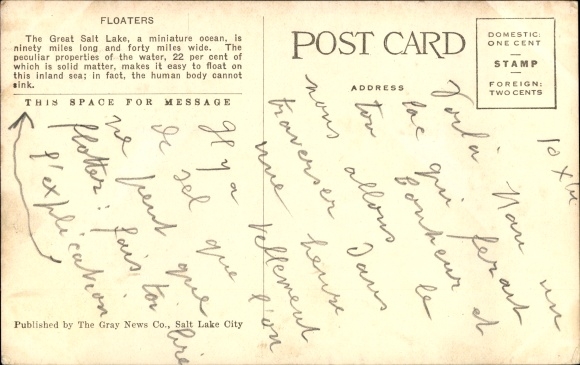 FLOATERS
The Great Salt Lake, a miniature ocean, is
ninety miles long and forty miles wide. The
peculiar properties of the water, 22 per cent of
which is solid matter, makes it easy to float on
this inland sea; in fact, the human body cannot
sink.
THIS SPACE FOR MESSAGE
POST CARD
ADDRESS
DOMESTIC:
ONE CENT
STAMP
FOREIGN:
TWO CENTS
10 Xbre
Voilà Nan un
lac qui ferait
ton bonheur et
nous allons le
traverser dans
une heure
Il y a tellement
de sel que l'on
ne peut que
flotter: fais toi lire
l'explication
Published by The Gray News Co., Salt Lake City